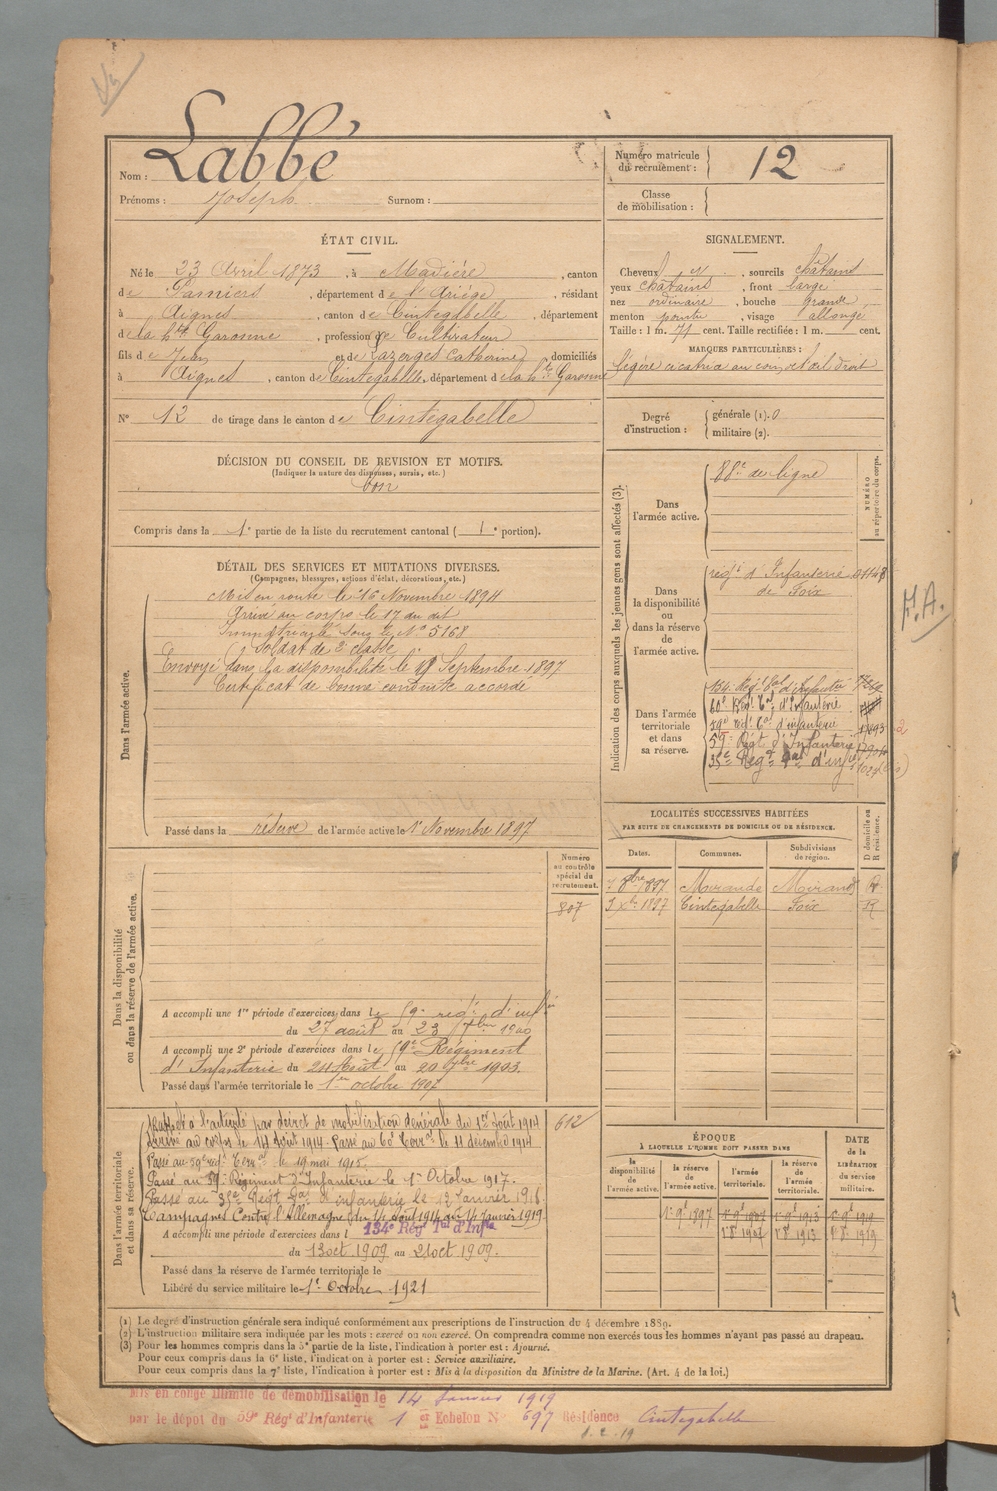 Labbé
Nom :
Prénoms : Joseph Surnom :
Numéro matricule
du recrutement : 12
Classe
de mobilisation :
ÉTAT CIVIL.
Né le 23 Avril 1873, à Madière, canton
de Pamiers, département de l'Ariège, résidant
à Aignes, canton de Cintegabelle, département
de la hte Garonne, profession de Cultivateur
fils de Jean et de Lazerges Catherine, domiciliés
à Aignes, canton de Cintegabelle, département de la hte Garonne
N° 12 de tirage dans le canton de Cintegabelle
SIGNALEMENT.
Cheveux, sourcils châtains
yeux châtains, front large
nez ordinaire, bouche grande
menton pointu, visage allongé
Taille : 1 m. 71 cent. Taille rectifiée : 1 m. cent.
MARQUES PARTICULIÈRES :
légère cicatrice au coin de l'œil droit
Degré
d'instruction :
générale (1). 0
militaire (2).
DÉCISION DU CONSEIL DE REVISION ET MOTIFS.
(Indiquer la nature des dispenses, sursis, etc.)
bon
Compris dans la 1e partie de la liste du recrutement cantonal ( 1e portion).
DÉTAIL DES SERVICES ET MUTATIONS DIVERSES.
(Campagnes, blessures, actions d'éclat, décorations, etc.)
Dans l'armée active.
Mis en route le 16 Novembre 1894
Arrivé au corps le 17 du dit
Immatriculé sous le No 5168
Soldat de 2e classe
Envoyé dans la disponibilité le 19 Septembre 1897
Certificat de bonne conduite accordé
Passé dans la réserve de l'armée active le 1er Novembre 1897
Indication des corps auxquels les jeunes gens sont affectés (3).
NUMÉRO
au répertoire du corps.
Dans
l'armée active.
88e de ligne
Dans
la disponibilité
ou
dans la réserve
de
l'armée active.
régt d'Infanterie
de Foix
Dans l'armée
territoriale
et dans
sa réserve.
134e Régt tal d'Infanterie
60e Régt Tal d'Infanterie
59e régt tal d'infanterie
59e Régt d'Infanterie
35e Régt tal d'infie
H.A.
LOCALITÉS SUCCESSIVES HABITÉES
PAR SUITE DE CHANGEMENTS DE DOMICILE OU DE RÉSIDENCE.
D domicile ou
R résidence.
Dates. Communes. Subdivisions
de région.
7 8bre 1897 Mirande Mirande R
3 Xbre 1897 Cintegabelle Foix R
Numéro
au contrôle
spécial du
recrutement.
807
Dans la disponibilité
ou dans la réserve de l'armée active.
A accompli une 1re période d'exercices dans le 59e régt d'infie
du 27 août au 23 7bre 1900
A accompli une 2e période d'exercices dans le 59e Régiment
d'Infanterie du 24 Août au 20 7bre 1903.
Passé dans l'armée territoriale le 1er octobre 1907
Dans l'armée territoriale
et dans sa réserve.
612
Rappelé à l'activité par décret de mobilisation générale du 1er Août 1914
Arrivé au corps le 14 Août 1914. Passé au 60e Terral le 11 décembre 1914
Passé au 59e régt Terral le 19 mai 1915.
Passé au 59e Régiment d'Infanterie le 1er Octobre 1917.
Passé au 35e Régt tal d'infanterie le 12 Janvier 1918.
Campagnes Contre l'Allemagne du 14 août 1914 au 14 Janvier 1919
A accompli une période d'exercices dans l 134e Régt Tal d'Infie
du 13 oct 1909 au 21 oct 1909.
Passé dans la réserve de l'armée territoriale le
Libéré du service militaire le 1er Octobre 1921
ÉPOQUE
À LAQUELLE L'HOMME DOIT PASSER DANS
DATE
de la
LIBÉRATION
du service
militaire.
la
disponibilité
de
l'armée active.
la réserve
de
l'armée active.
l'armée
territoriale.
la réserve
de
l'armée
territoriale.
1er 9bre 1897 1er 9bre 1907 1er 9bre 1913 1er 9bre 1919
1er 8bre 1907 1er 8bre 1913 1er 8bre 1919
(1) Le degré d'instruction générale sera indiqué conformément aux prescriptions de l'instruction du 4 décembre 1889.
(2) L'instruction militaire sera indiquée par les mots : exercé ou non exercé. On comprendra comme non exercés tous les hommes n'ayant pas passé au drapeau.
(3) Pour les hommes compris dans la 5e partie de la liste, l'indication à porter est : Ajourné.
Pour ceux compris dans la 6e liste, l'indication à porter est : Service auxiliaire.
Pour ceux compris dans la 7e liste, l'indication à porter est : Mis à la disposition du Ministre de la Marine. (Art. 4 de la loi.)
Mis en congé illimité de démobilisation le 14 Janvier 1919
par le dépôt du 59e Régt d'Infanterie 1er Echelon N° 697 Résidence Cintegabelle